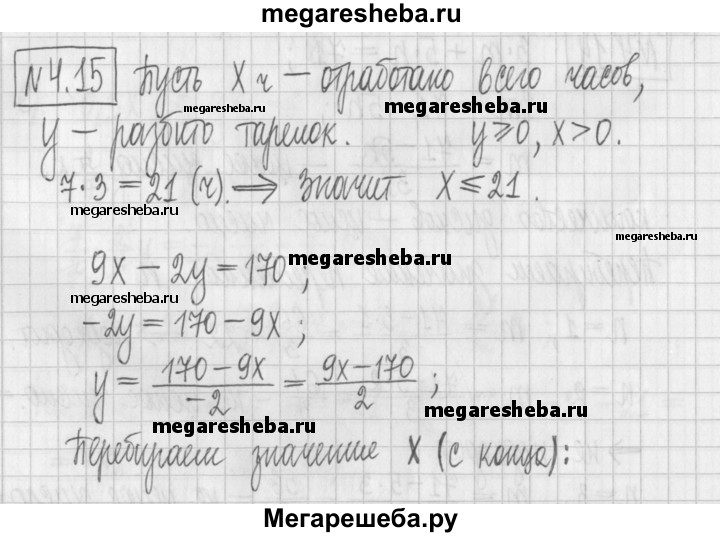 megaresheba.ru
№4.15 Пусть X ч – отработано всего часов,
megaresheba.ru megaresheba.ru
y – разбито тарелок. y ⩾ 0, x > 0.
7·3 = 21 (ч). ⟹ Значит X ⩽ 21.
megaresheba.ru
megaresheba.ru
9x – 2y = 170 ; megaresheba.ru
megaresheba.ru
–2y = 170 – 9x ;
y = (170 – 9x)/(–2) = (9x – 170)/2 ;
megaresheba.ru
megaresheba.ru
Перебираем значение X (с конца):
Мегарешеба.ру